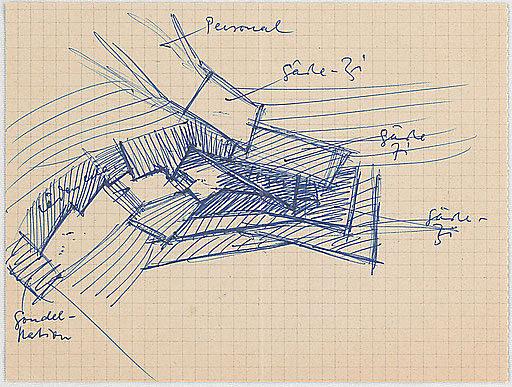 Personal
Gäste-Zi
Gäste
Zi
Gäste-
Zi
Gondel-
station